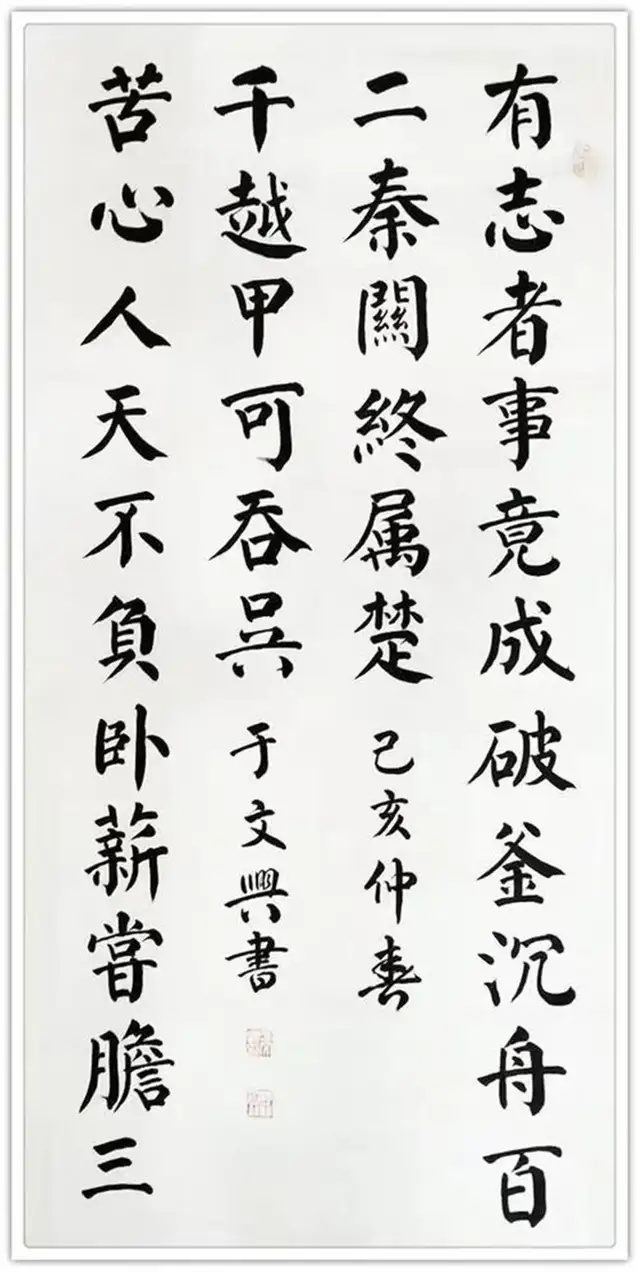 有志者事竟成破釜沉舟百
二秦關終属楚
己亥仲春
苦心人天不負卧薪嘗膽三
千越甲可吞吳
于文興書